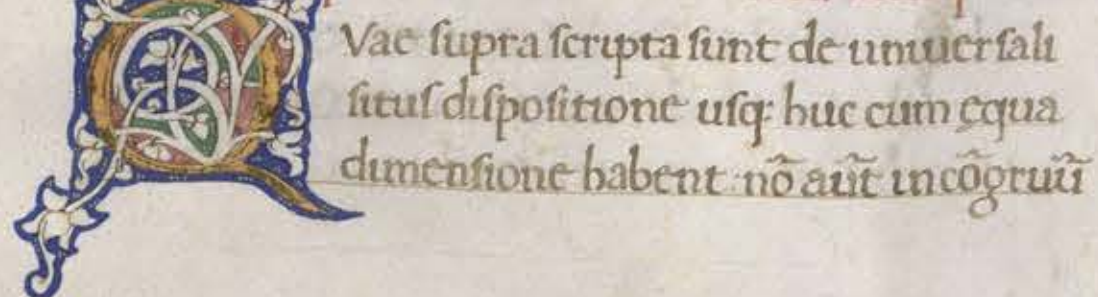 QVae ſupra ſcripta ſunt de uniuerſali
ſituſ diſpoſitione uſq: huc cum ęqua
dimenſione habent nō aūt incōgruū